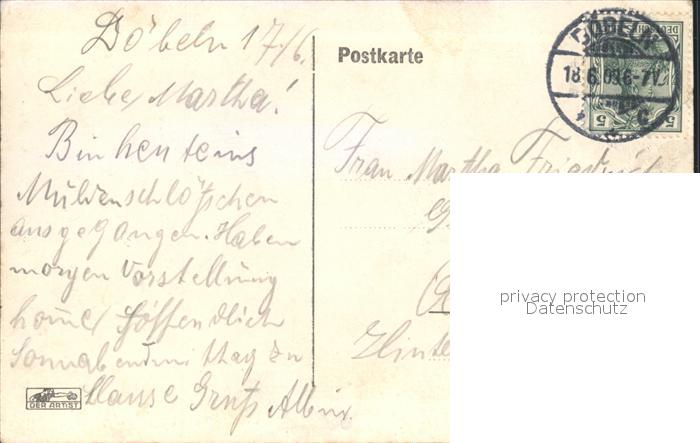 Döbeln 17/6.
Liebe Martha!
Bin heute ins
Muldenschlößchen
ausgegangen. Haben
morgen Vorstellung
komme hoffendlich
Sonnabend mittag zu
Hause Gruß Albin.
DER ARTIST
Postkarte
DÖBELN
18.6.09.6-7V.
c
5 5
Frau Martha
Hinte
privacy protection
Datenschutz